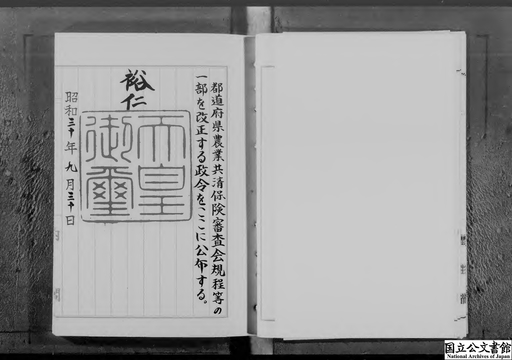 都道府県農業共済保険審査会規程等の
一部を改正する政令をここに公布する。
裕仁
天皇
御璽
昭和三十年九月三十日
国立公文書館
National Archives of Japan